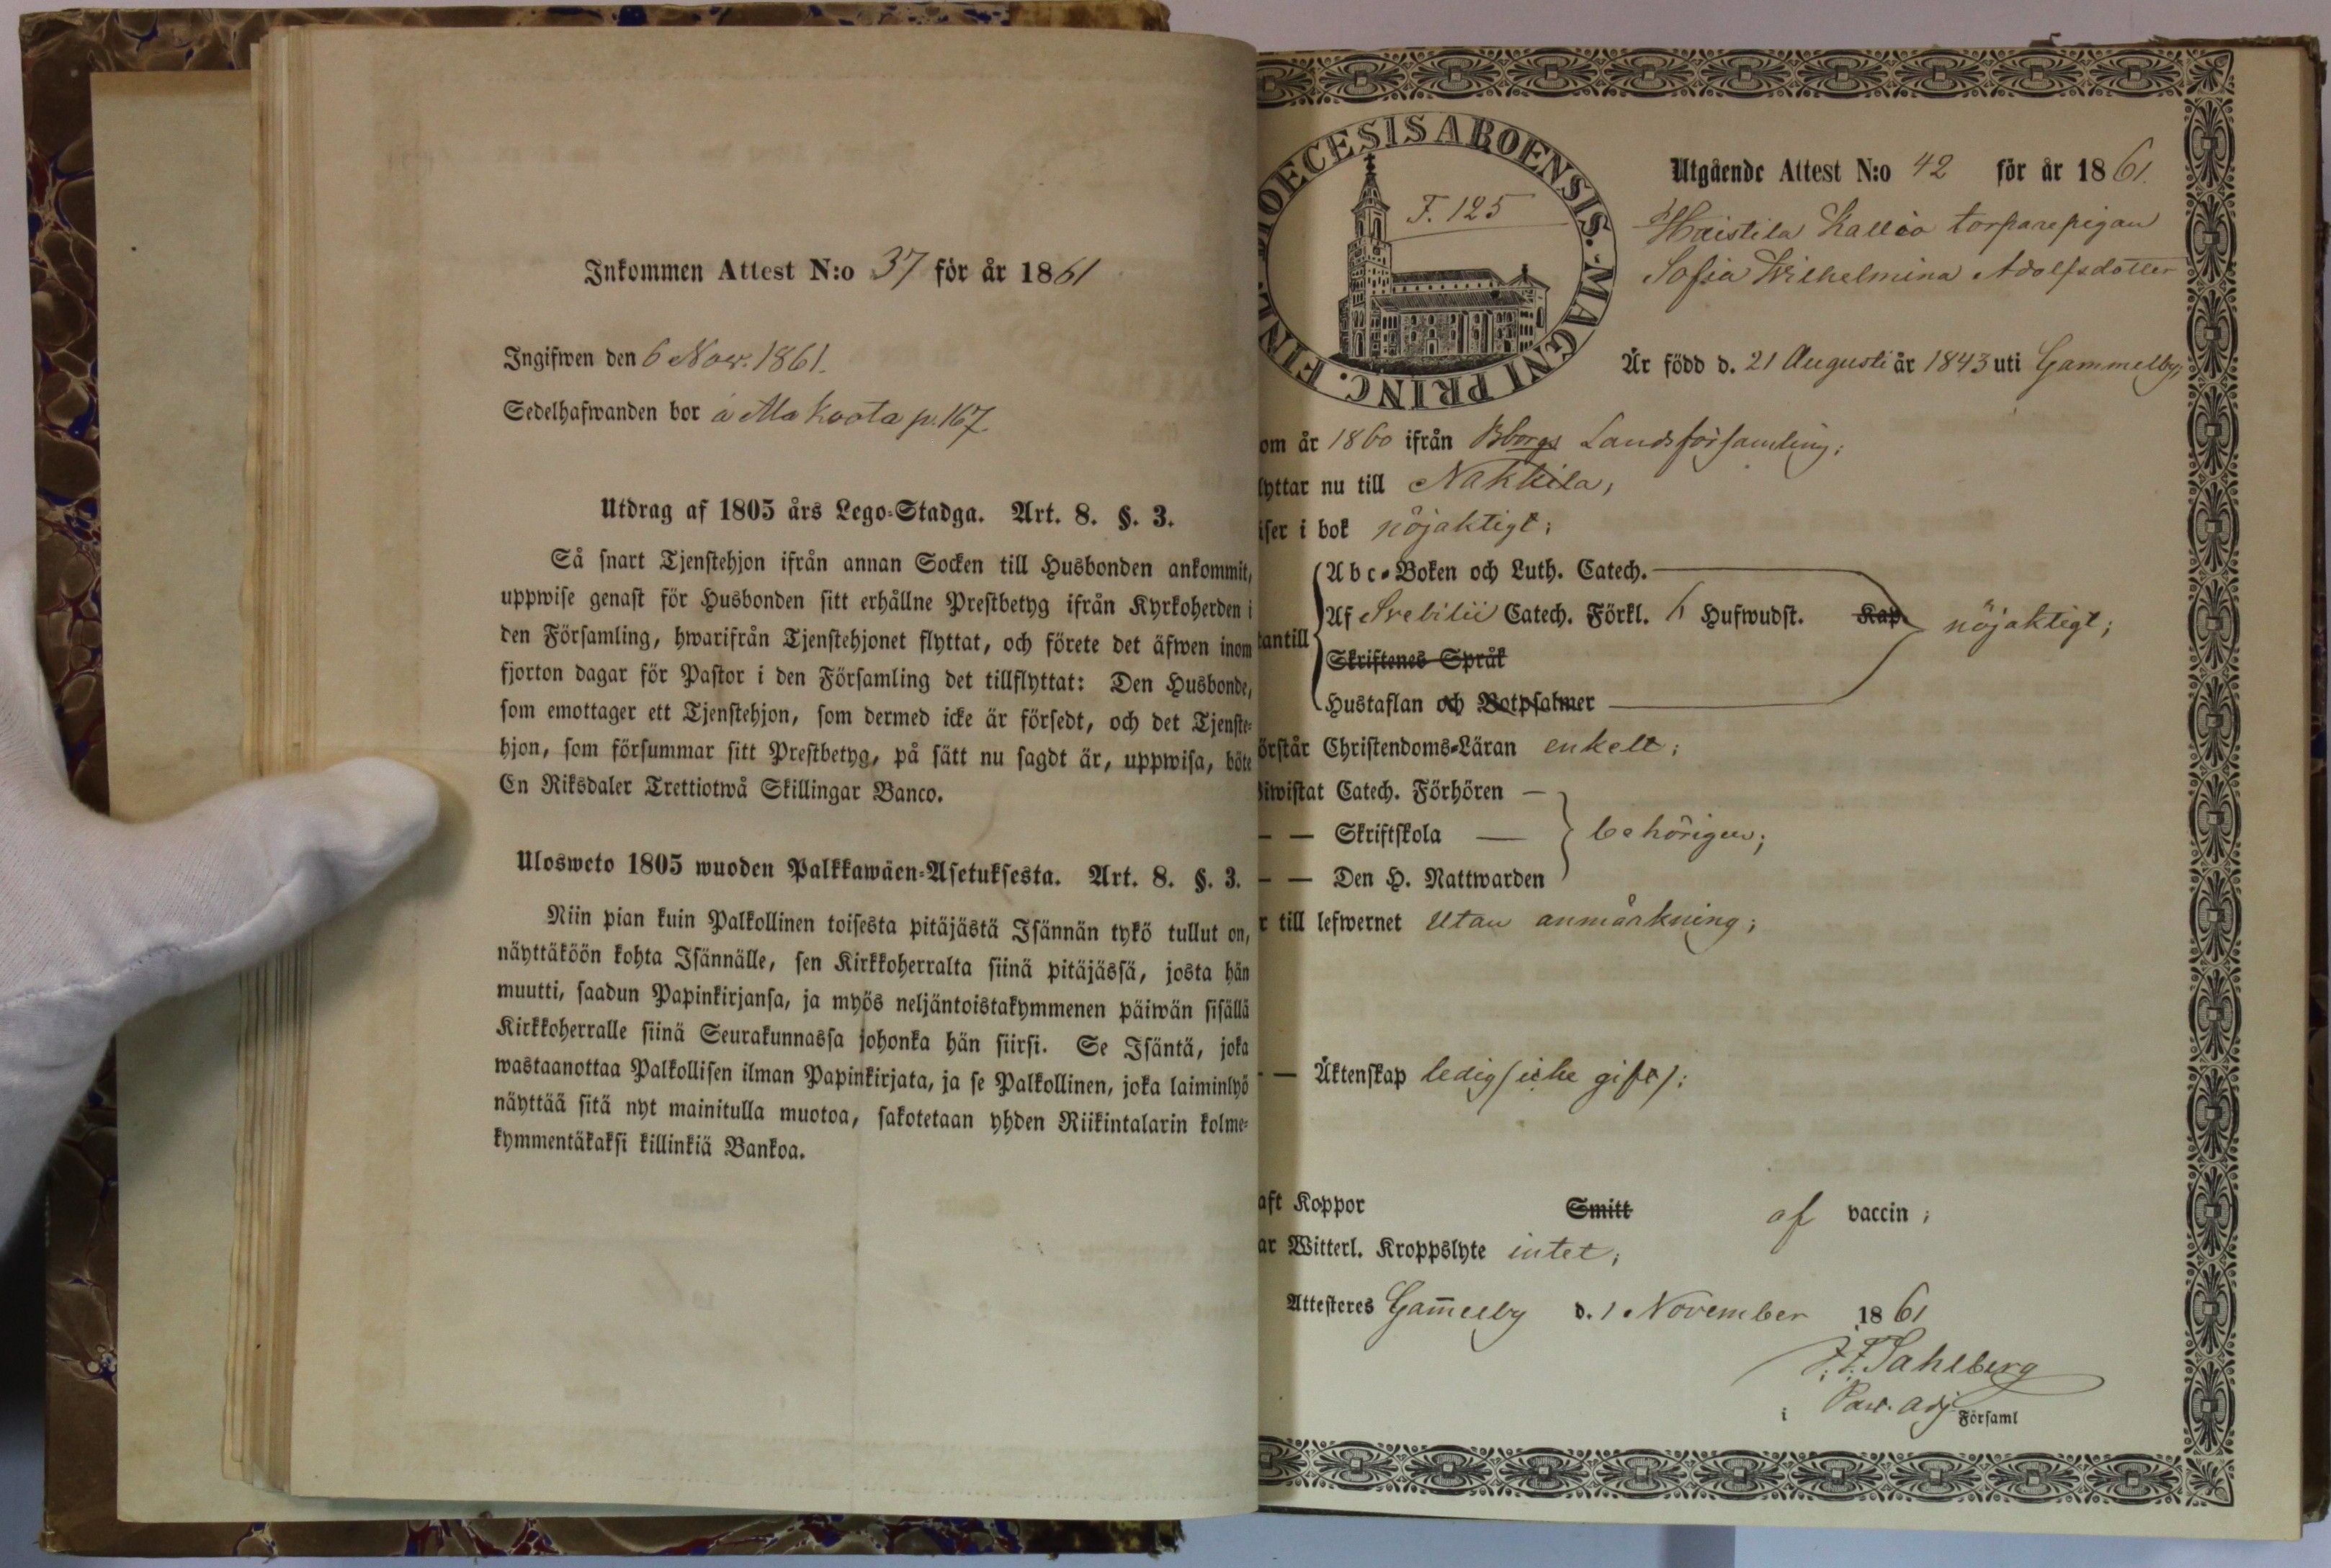 Inkommen Attest N:o 37 för år 1861
Ingifwen den 6 Nov. 1861.
Sedelhafwanden bor à Ala koota p. 167.
Utdrag af 1805 års Lego-Stadga. Art. 8. §. 3.
Så snart Tjenstehjon ifrån annan Socken till Husbonden ankommit,
uppwise genast för Husbonden sitt erhållne Prestbetyg ifrån Kyrkoherden i
den Församling, hwarifrån Tjenstehjonet flyttat, och förete det äfwen inom
fjorton dagar för Pastor i den Församling det tillflyttat: Den Husbonde,
som emottager ett Tjenstehjon, som dermed icke är försedt, och det Tjenste-
hjon, som försummar sitt Prestbetyg, på sätt nu sagdt är, uppwisa, böte
En Riksdaler Trettiotwå Skillingar Banco.
Ulosweto 1805 wuoden Palkkawäen-Asetuksesta. Art. 8. §. 3.
Niin pian kuin Palkollinen toisesta pitäjästä Isännän tykö tullut on,
näyttäköön kohta Isännälle, sen Kirkkoherralta siinä pitäjässä, josta hän
muutti, saadun Papinkirjansa, ja myös neljäntoistakymmenen päiwän sisällä
Kirkkoherralle siinä Seurakunnassa johonka hän siirsi. Se Isäntä, joka
wastaanottaa Palkollisen ilman Papinkirjata, ja se Palkollinen, joka laiminlyö
näyttää sitä nyt mainitulla muotoa, sakotetaan yhden Riikintalarin kolme-
kymmentäkaksi killinkiä Bankoa.
DIOECESIS ABOENSIS. MAGNI PRINC. FINL.
F. 125
Utgående Attest N:o 42 för år 1861.
Haistila Kallio torparepigan
Sofia Wilhelmina Adolfsdotter
Är född d. 21 Augusti år 1843 uti Gammelby;
om år 1860 ifrån Bborgs Landsförsamling;
lyttar nu till Nakkila;
iser i bok nöjaktigt;
A b c-Boken och Luth. Catech.
tantill Af Svebilii Catech. Förkl. 6 Hufwudst. Kap. nöjaktigt;
Skriftenes Språk
Hustaflan och Botpsalmer
örstår Christendoms-Läran enkelt;
iwistat Catech. Förhören —
— — Skriftskola — behörigen;
— — Den H. Nattwarden
r till lefwernet utan anmärkning;
— — Äktenskap ledig (icke gift);
aft Koppor Smitt af vaccin;
ar Witterl. Kroppslyte intet;
Attesteres Gam̄elby d. 1 November 1861
F. F. Sahlberg
i Past. adj. Församl